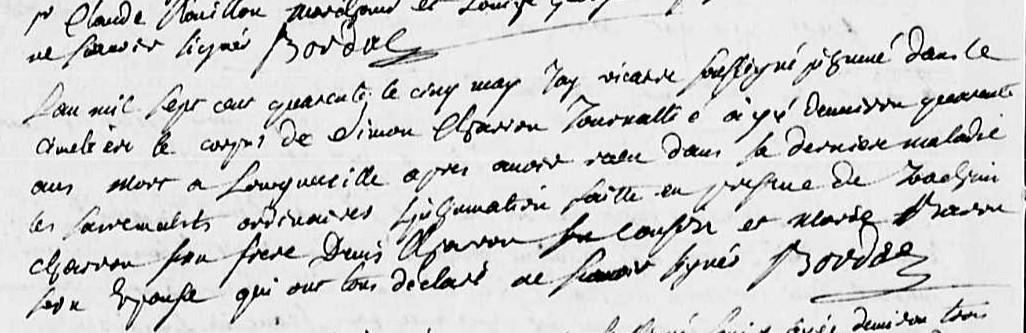 Claude Rouillon marchand et Louise
ne scavoir signés Bordas
L'an mil sept cent quarente le cinq may Jay vicaire soussigné jnhumé dans le
cimetière le corps de Simon Charion Journallié agé d'environ quarente
ans mort a après avoir receu dans sa dernière maladie
les sacremalits ordinaires l'jnhumation faitte en presence de Joachim
charion son frere Denis Charion son cousin et Marie Baron
son Epouse qui ont tous déclaré ne scavoir signés Bordas
agée d'environ trois